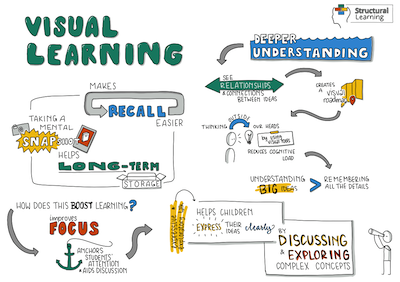 Structural
Learning
VISUAL
LEARNING
DEEPER
UNDERSTANDING
MAKES
RECALL
EASIER
TAKING A
MENTAL
SNAP
HELPS
LONG-TERM
STORAGE
SEE
RELATIONSHIPS
& CONNECTIONS
BETWEEN IDEAS
CREATES
A VISUAL
THINKING OUTSIDE OUR HEADS
REDUCES COGNITIVE
LOAD
UNDERSTANDING
BIG IDEAS
>
REMEMBERING
ALL THE DETAILS
HOW DOES THIS BOOST LEARNING?
improves
FOCUS
ANCHORS
STUDENTS'
ATTENTION
& AIDS DISCUSSION
HELPS CHILDREN
EXPRESS THEIR
IDEAS clearly
BY
DISCUSSING
& EXPLORING
COMPLEX CONCEPTS